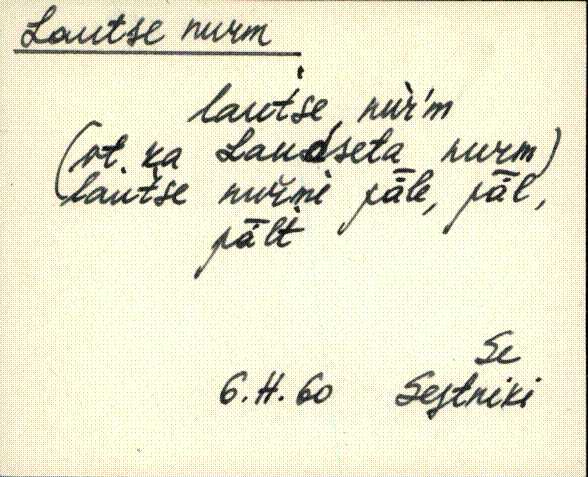 Lautse nurm
laut́se nùŕm
(vt. ka Laudseta nurm)
laut́se nuŕmè pǟle, pǟl,
pǟlt
Se
6.II.60 Sesniki